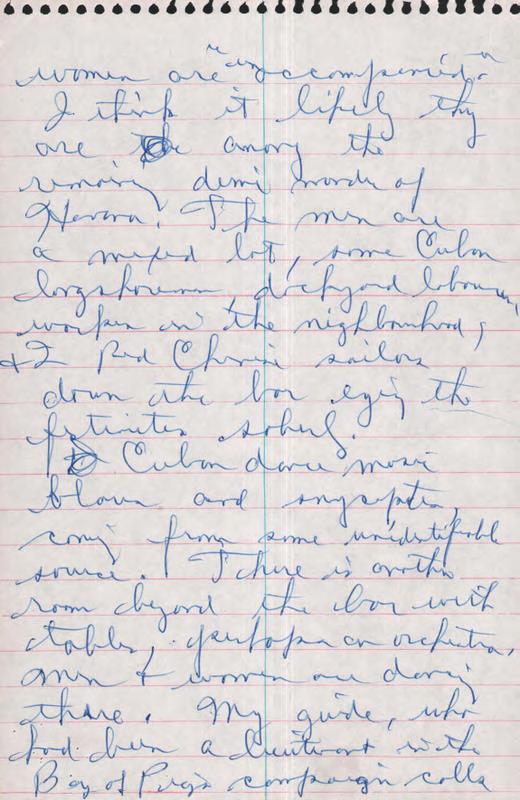 women are "unaccompanied."
I think it likely they
are among the
remaining demi monde of
Havana. The men are
a mixed lot, some Cuban
longshoremen, dockyard labourers,
workers in the neighbourhood,
+ 2 Red Chinese sailors
down the bar eying the
festivities soberly.
Cuban dance music
blares and
coming from some unidentifiable
source. There is another
room beyond the bar with
tables, perhaps an orchestra,
men + women are dancing
there. My guide, who
had been a lieutenant in the
Bay of Pigs campaign calls